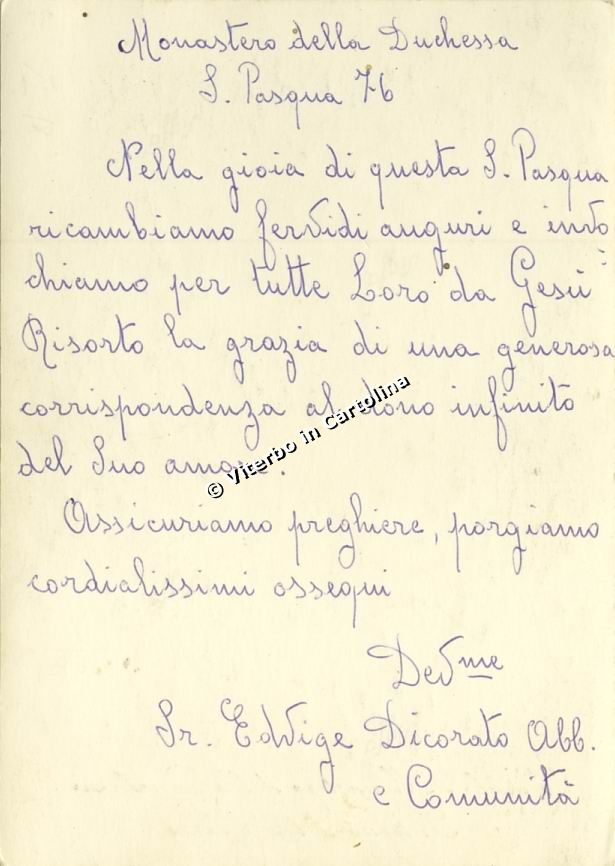 Monastero della Duchessa
S. Pasqua 76
Nella gioia di questa S. Pasqua
ricambiamo fervidi auguri e invo
chiamo per tutte Loro da Gesù
Risorto la grazia di una generosa
corrispondenza al dono infinito
del Suo amore.
© Viterbo in Cartolina
Assicuriamo preghiere, porgiamo
cordialissimi ossequi
Dev me
Sr. Edvige Dicorato Abb.
e Comunità